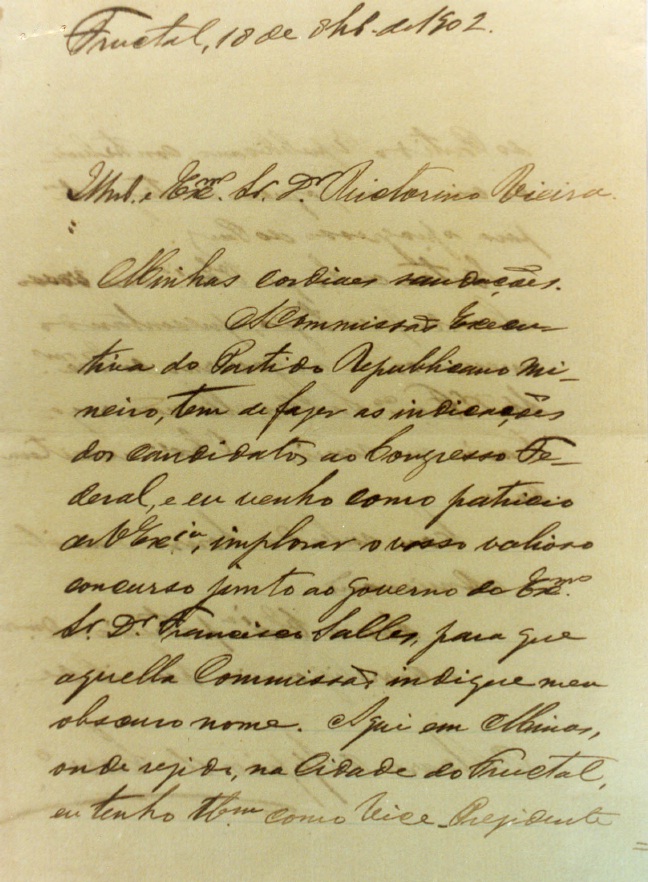 Fructal, 18 de 8bb. de 1902.
Illmo. e Exmo. Sr. Dr. Victorino Vieira.
Minhas cordiaes saudações.
A Commissão Execu-
tiva do Partido Republicano Mi-
neiro, tem de fazer as indicações
dos candidatos ao Congresso Fe-
deral, e eu venho como patricio
de V Excia, implorar o vosso valioso
concurso junto ao governo do Exmo.
Sr. Dr. Francisco Salles, para que
aquella Commissão indique meu
obscuro nome. Aqui em Minas,
onde rezido, na Cidade do Fructal,
eu tenho tbem como Vice-Prezidente